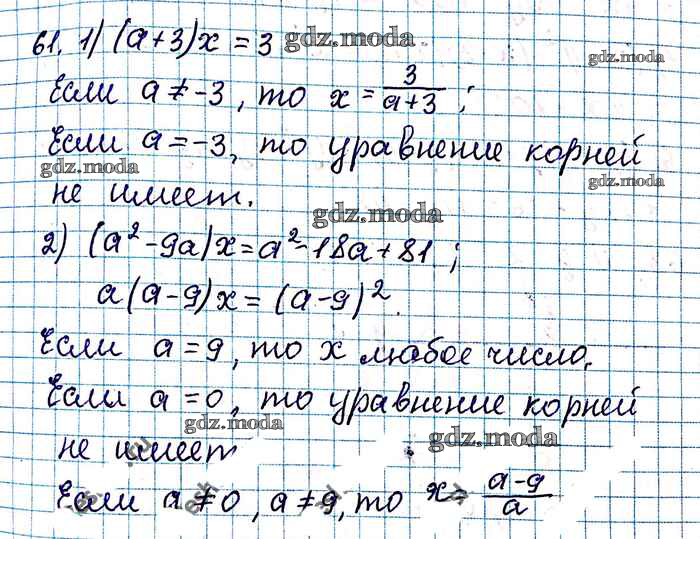 61. 1) (a+3)x = 3 gdz.moda
gdz.moda
Если a ≠ -3, то x = 3/(a+3);
Если a = -3, то уравнение корней
gdz.moda
gdz.moda
не имеет.
gdz.moda
2) (a² - 9a)x = a² - 18a + 81;
a(a-9)x = (a-9)².
Если a = 9, то x любое число.
Если a = 0, то уравнение корней
gdz.moda
gdz.moda
не имеет
Если a ≠ 0, a ≠ 9, то x = (a-9)/a